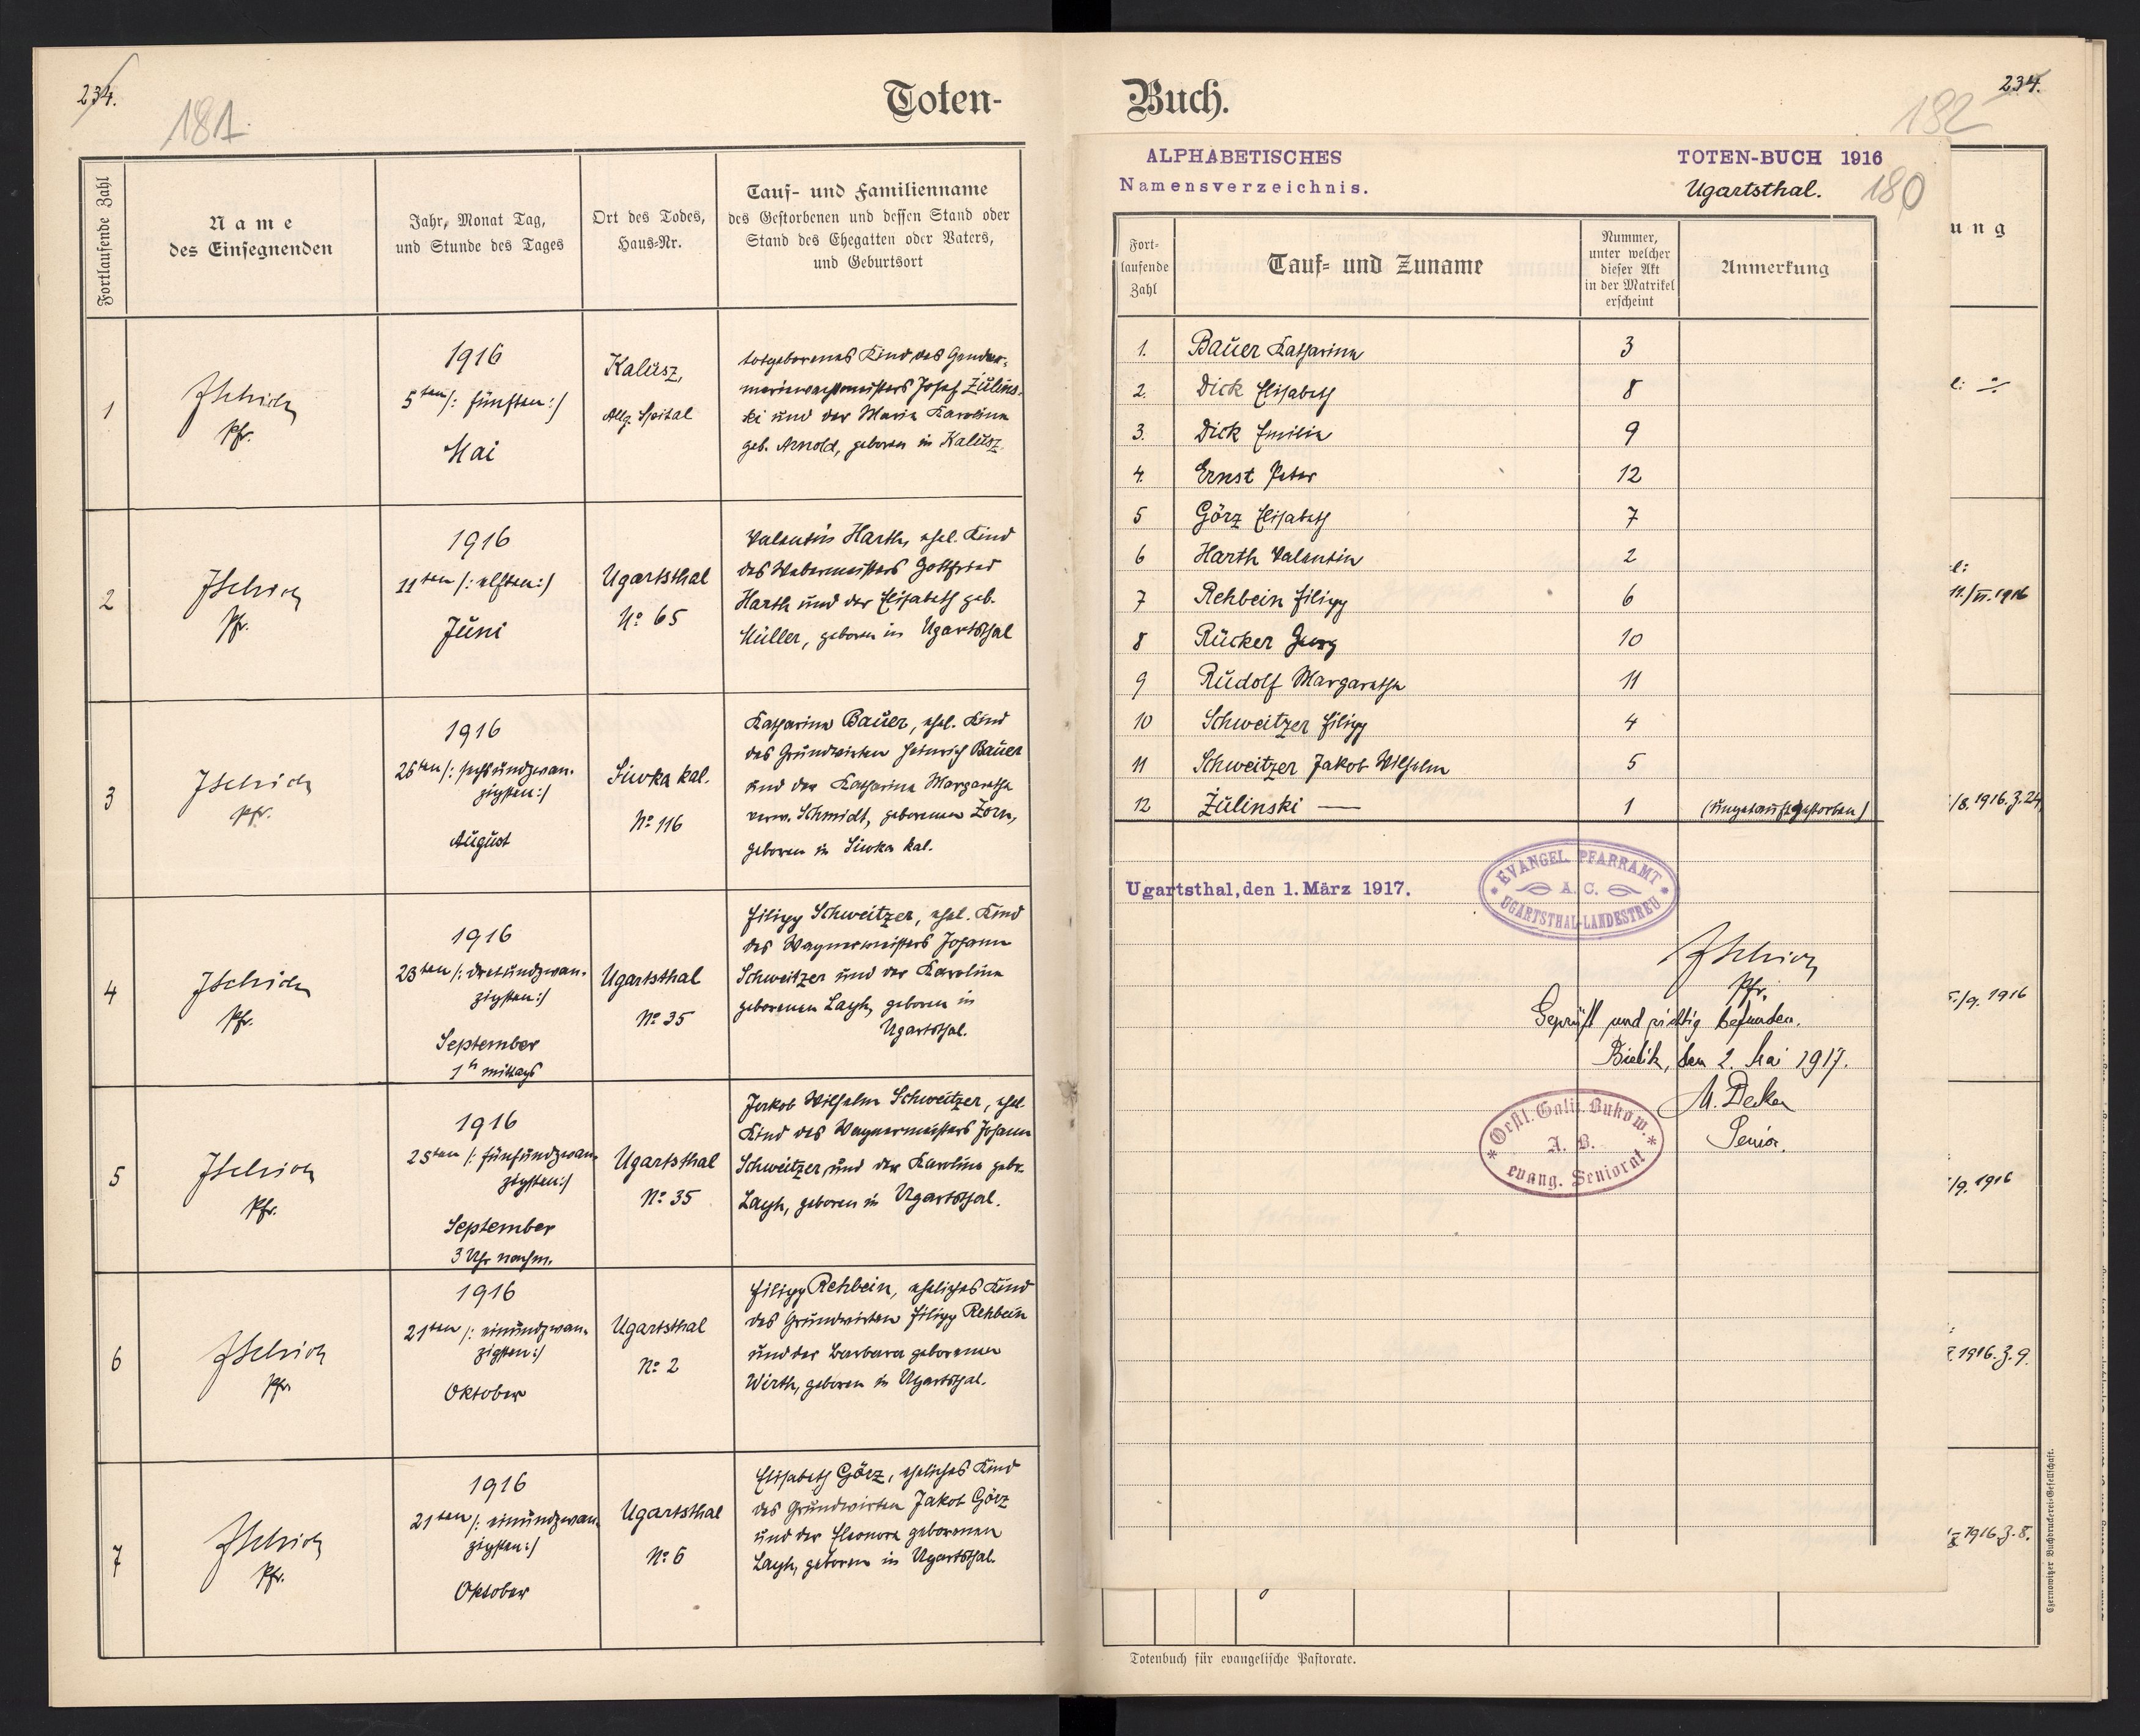 234.
181.
Toten-
Fortlaufende Zahl
Name
des Einsegnenden
Jahr, Monat Tag,
und Stunde des Tages
Ort des Todes,
Haus-Nr.
Tauf- und Familienname
des Gestorbenen und dessen Stand oder
Stand des Ehegatten oder Vaters,
und Geburtsort
1
Pfr.
1916
5ten /: fünften :/
Mai
Kalusz,
Allg. Spital
totgeborenes Kind des Gendar-
meriewachtmeisters Josef Żulins-
ki und der Maria Karolina
geb. Arnold, geboren in Kalusz.
2
Pfr.
1916
11ten /: elften :/
Juni
Ugartsthal
No 65
Valentin Harth, ehel. Kind
des Webermeisters Gottfried
Harth und der Elisabeth geb.
Müller, geboren in Ugartsthal
3
Pfr.
1916
26ten /: sechsundzwan-
zigsten :/
August
Siwka kal.
No 116
Katharina Bauer, ehel. Kind
des Grundwirten Heinrich Bauer
und der Katharina Margaretha
verw. Schmidt, geborenen Zorn,
geboren in Siwka kal.
4
Pfr.
1916
23ten /: dreiundzwan-
zigsten :/
September
1h mittags
Ugartsthal
No 35
Filipp Schweitzer, ehel. Kind
des Wagnermeisters Johann
Schweitzer und der Karolina
geborenen Layh, geboren in
Ugartsthal.
5
Pfr.
1916
25ten /: fünfundzwan-
zigsten :/
September
3 Uhr nachm.
Ugartsthal
No 35
Jakob Wilhelm Schweitzer, ehel
Kind des Wagnermeisters Johann
Schweitzer und der Karolina geb.
Layh, geboren in Ugartsthal.
6
Pfr.
1916
21ten /: einundzwan-
zigsten :/
Oktober
Ugartsthal
No 2
Filipp Rehbein, eheliches Kind
des Grundwirten Filipp Rehbein
und der Barbara geborenen
Wirth, geboren in Ugartsthal.
7
Pfr.
1916
21ten /: einundzwan-
zigsten :/
Oktober
Ugartsthal
No 6
Elisabeth Görz, eheliches Kind
des Grundwirten Jakob Görz
und der Eleonora geborenen
Layh, geboren in Ugartsthal.
Buch.
234.
182
ALPHABETISCHES
Namensverzeichnis.
TOTEN-BUCH 1916
Ugartsthal.
180
Fort-
laufende
Zahl
Tauf- und Zuname
Nummer,
unter welcher
dieser Akt
in der Matrikel
erscheint
Anmerkung
1. Bauer Katharina 3
2. Dick Elisabeth 8
3. Dick Emilia 9
4. Ernst Peter 12
5 Görz Elisabeth 7
6 Harth Valentin 2
7 Rehbein Filipp 6
8 Rücker Georg 10
9 Rudolf Margaretha 11
10 Schweitzer Filipp 4
11 Schweitzer Jakob Wilhelm 5
12 Żulinski — 1 (ungetauft gestorben)
Ugartsthal, den 1. März 1917.
EVANGEL. PFARRAMT
A. C.
UGARTSTHAL-LANDESTREU
Pfr.
Geprüft und richtig befunden.
Bielitz, den 2. Mai 1917.
Senior.
Oestl. Galiz. Bukow.
A. B.
evang. Seniorat
ung
11./VI. 1916
/8. 1916. Z. 24
/9. 1916
/9. 1916
1916. Z. 9.
1916. Z. 8.
Totenbuch für evangelische Pastorate.
Czernowitzer Buchdruckerei-Gesellschaft.